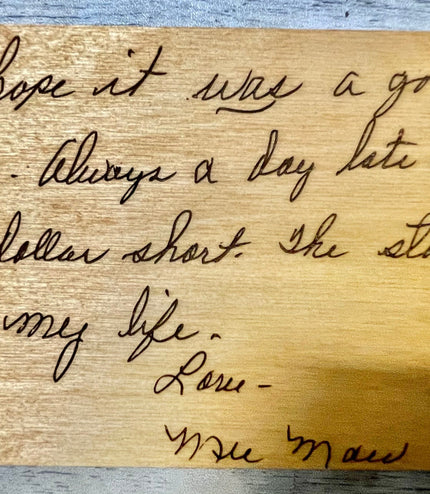 hope it was a go
. Always a day late
dollar short. The sto
my life.
Love -
Mee Maw